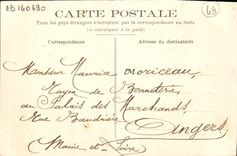 CARTE POSTALE
Tous les pays étrangers n'acceptent pas la correspondance au recto
(se renseigner à la poste)
Correspondance
Adresse du destinataire
Monsieur Maurice
Rayon de Bonneterie
au Palais des Marchands
Rue Baudrière
Angers
Maine et Loire